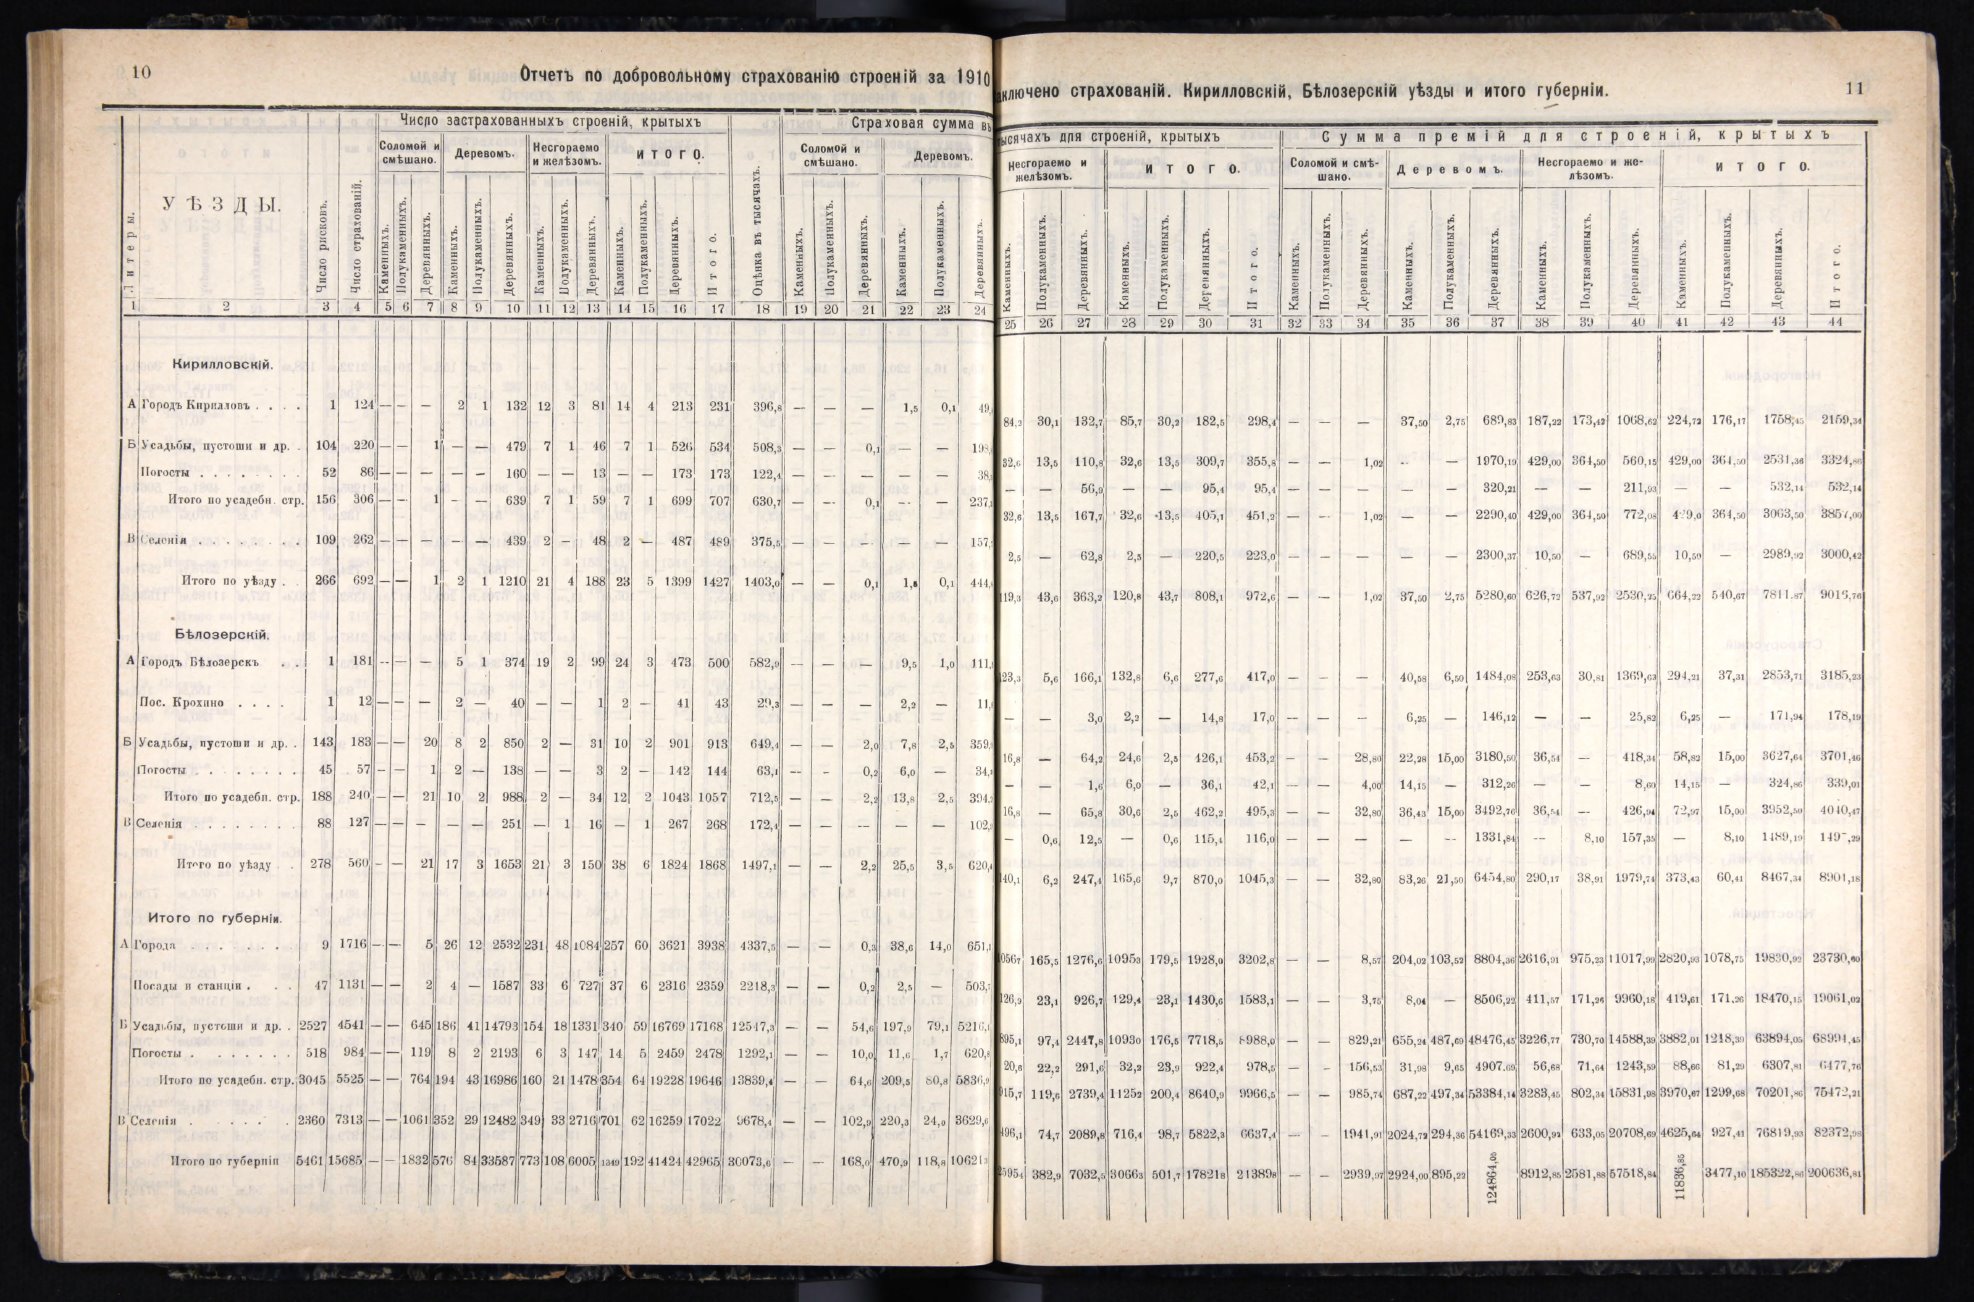 10
Отчетъ по добровольному страхованію строеній за 1910
Число застрахованныхъ строеній, крытыхъ
Страховая сумма въ
Соломой и смѣшано.
Деревомъ.
Несгораемо и желѣзомъ.
ИТОГО.
Соломой и смѣшано.
Деревомъ.
Литеры.
УѢЗДЫ.
Число рисковъ.
Число страхованій.
Каменныхъ.
Полукаменныхъ.
Деревянныхъ.
Каменныхъ.
Полукаменныхъ.
Деревянныхъ.
Каменныхъ.
Полукаменныхъ.
Деревянныхъ.
Каменныхъ.
Полукаменныхъ.
Деревянныхъ.
Итого.
Оцѣнка въ тысячахъ.
Каменныхъ.
Полукаменныхъ.
Деревянныхъ.
Каменныхъ.
Полукаменныхъ.
Деревянныхъ.
1 2 3 4 5 6 7 8 9 10 11 12 13 14 15 16 17 18 19 20 21 22 23 24
Кирилловскій.
А Городъ Кирилловъ . . . . 1 124 — — — 2 1 132 12 3 81 14 4 213 231 396,8 — — — 1,5 0,1
Б Усадьбы, пустоши и др. . 104 220 — — 1 — — 479 7 1 46 7 1 526 534 508,3 — — 0,1 — —
Погосты . . . . . . . 52 86 — — — — — 160 — — 13 — — 173 173 122,4 — — — — —
Итого по усадебн. стр. 156 306 — — 1 — — 639 7 1 59 7 1 699 707 630,7 — — 0,1 — —
В Селенія . . . . . . . . 109 262 — — — — — 439 2 — 48 2 — 487 489 375,5 — — — — —
Итого по уѣзду . . 266 692 — — 1 2 1 1210 21 4 188 23 5 1399 1427 1403,0 — — 0,1 1,5 0,1
Бѣлозерскій.
А Городъ Бѣлозерскъ . . 1 181 — — — 5 1 374 19 2 99 24 3 473 500 582,9 — — — 9,5 1,0
Пос. Крохино . . . . 1 12 — — — 2 — 40 — — 1 2 — 41 43 29,3 — — — 2,2 —
Б Усадьбы, пустоши и др. . 143 183 — — 20 8 2 850 2 — 31 10 2 901 913 649,4 — — 2,0 7,8 2,5
Погосты . . . . . . . 45 57 — — 1 2 — 138 — — 3 2 — 142 144 63,1 — — 0,2 6,0 —
Итого по усадебн. стр. 188 240 — — 21 10 2 988 2 — 34 12 2 1043 1057 712,5 — — 2,2 13,8 2,5
В Селенія . . . . . . . . 88 127 — — — — — 251 — 1 16 — 1 267 268 172,4 — — — — —
Итого по уѣзду . . 278 560 — — 21 17 3 1653 21 3 150 38 6 1824 1868 1497,1 — — 2,2 25,5 3,5
Итого по губерніи.
А Города . . . . . . . 9 1716 — — 5 26 12 2532 231 48 1084 257 60 3621 3938 4337,5 — — 0,3 38,6 14,0
Посады и станціи . . . 47 1131 — — 2 4 — 1587 33 6 727 37 6 2316 2359 2218,3 — — 0,2 2,5 —
Б Усадьбы, пустоши и др. . 2527 4541 — — 645 186 41 14793 154 18 1331 340 59 16769 17168 12547,3 — — 54,6 197,9 79,1
Погосты . . . . . . . 518 984 — — 119 8 2 2193 6 3 147 14 5 2459 2478 1292,1 — — 10,0 11,6 1,7
Итого по усадебн. стр. 3045 5525 — — 764 194 43 16986 160 21 1478 354 64 19228 19646 13839,4 — — 64,6 209,5 80,8
В Селенія . . . . . . 2360 7313 — — 1061 352 29 12482 349 33 2716 701 62 16259 17022 9678,4 — — 102,9 220,3 24,0
Итого по губерніи 5461 15685 — — 1832 576 84 33587 773 108 6005 1349 192 41424 42965 30073,6 — — 168,0 470,9 118,8
заключено страхованій. Кирилловскій, Бѣлозерскій уѣзды и итого губерніи.
11
тысячахъ для строеній, крытыхъ
Сумма премій для строеній, крытыхъ
Несгораемо и желѣзомъ.
ИТОГО.
Соломой и смѣшано.
Деревомъ.
Несгораемо и желѣзомъ.
ИТОГО.
Каменныхъ.
Полукаменныхъ.
Деревянныхъ.
Каменныхъ.
Полукаменныхъ.
Деревянныхъ.
Итого.
Каменныхъ.
Полукаменныхъ.
Деревянныхъ.
Каменныхъ.
Полукаменныхъ.
Деревянныхъ.
Каменныхъ.
Полукаменныхъ.
Деревянныхъ.
Каменныхъ.
Полукаменныхъ.
Деревянныхъ.
Итого.
25 26 27 28 29 30 31 32 33 34 35 36 37 38 39 40 41 42 43 44
84,2 30,1 132,7 85,7 30,2 182,5 298,4 — — — 37,50 2,75 689,83 187,22 173,42 1068,62 224,72 176,17 1758,45 2159,34
32,6 13,5 110,8 32,6 13,5 309,7 355,8 — — 1,02 — — 1970,19 429,00 364,50 560,15 429,00 364,50 2531,36 3324,86
— — 56,9 — — 95,4 95,4 — — — — — 320,21 — — 211,93 — — 532,14 532,14
32,6 13,5 167,7 32,6 13,5 405,1 451,2 — — 1,02 — — 2290,40 429,00 364,50 772,08 429,0 364,50 3063,50 3857,00
2,5 — 62,8 2,5 — 220,5 223,0 — — — — — 2300,37 10,50 — 689,55 10,50 — 2989,92 3000,42
119,3 43,6 363,2 120,8 43,7 808,1 972,6 — — 1,02 37,50 2,75 5280,60 626,72 537,92 2530,25 664,22 540,67 7811,87 9016,76
123,3 5,6 166,1 132,8 6,6 277,6 417,0 — — — 40,58 6,50 1484,08 253,63 30,81 1369,63 294,21 37,31 2853,71 3185,23
— — 3,0 2,2 — 14,8 17,0 — — — 6,25 — 146,12 — — 25,82 6,25 — 171,94 178,19
16,8 — 64,2 24,6 2,5 426,1 453,2 — — 28,80 22,28 15,00 3180,50 36,54 — 418,34 58,82 15,00 3627,64 3701,46
— — 1,6 6,0 — 36,1 42,1 — — 4,00 14,15 — 312,26 — — 8,60 14,15 — 324,86 339,01
16,8 — 65,8 30,6 2,5 462,2 495,3 — — 32,80 36,43 15,00 3492,76 36,54 — 426,94 72,97 15,00 3952,50 4040,47
— 0,6 12,5 — 0,6 115,4 116,0 — — — — — 1331,84 — 8,10 157,35 — 8,10 1489,19 149 ,29
140,1 6,2 247,4 165,6 9,7 870,0 1045,3 — — 32,80 83,26 21,50 6454,80 290,17 38,91 1979,74 373,43 60,41 8467,34 8901,18
1056,7 165,5 1276,6 1095,3 179,5 1928,0 3202,8 — — 8,57 204,02 103,52 8804,36 2616,91 975,23 11017,99 2820,93 1078,75 19830,92 23730,60
126,9 23,1 926,7 129,4 23,1 1430,6 1583,1 — — 3,75 8,04 — 8506,22 411,57 171,26 9960,18 419,61 171,26 18470,15 19061,02
895,1 97,4 2447,8 1093,0 176,5 7718,5 8988,0 — — 829,21 655,24 487,69 48476,45 3226,77 730,70 14588,39 3882,01 1218,39 63894,05 68994,45
20,6 22,2 291,6 32,2 23,9 922,4 978,5 — — 156,53 31,98 9,65 4907,69 56,68 71,64 1243,59 88,66 81,29 6307,81 6477,76
915,7 119,6 2739,4 1125,2 200,4 8640,9 9966,5 — — 985,74 687,22 497,34 53384,14 3283,45 802,34 15831,98 3970,67 1299,68 70201,86 75472,21
496,1 74,7 2089,8 716,4 98,7 5822,3 6637,4 — — 1941,91 2024,72 294,36 54169,33 2600,92 633,05 20708,69 4625,64 927,41 76819,93 82372,98
2595,4 382,9 7032,5 3066,3 501,7 17821,8 21389,8 — — 2939,97 2924,00 895,22 124864,05 8912,85 2581,88 57518,84 11836,85 3477,10 185322,86 200636,81